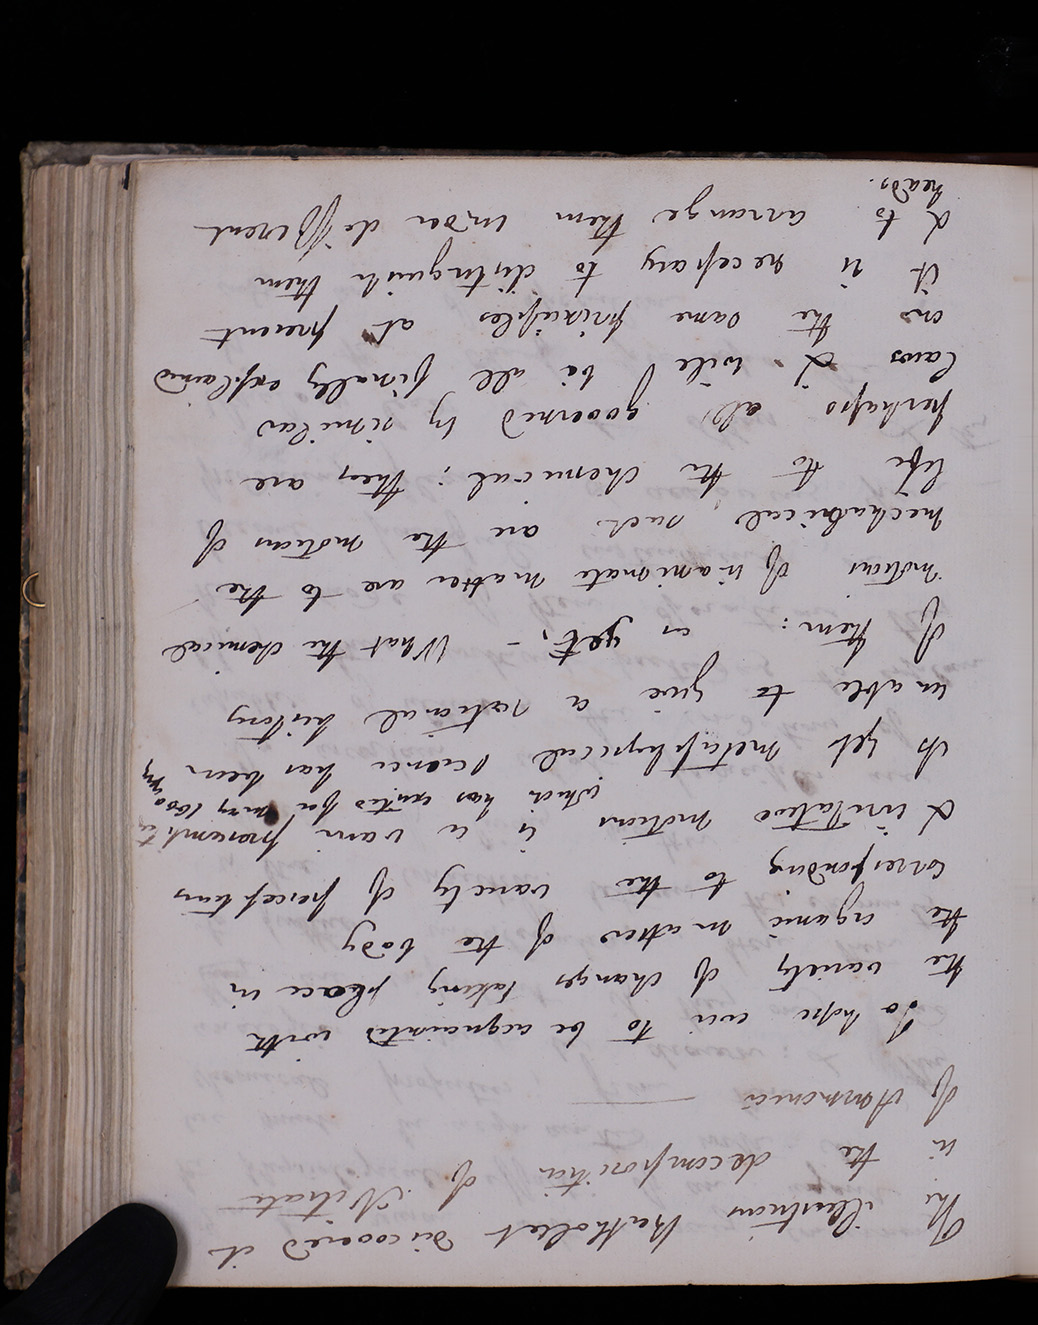 The illustrious Bertholet discovered it
in the decomposition of Nitrate
of Ammonia
To hope ever to be acquainted with
the variety of changes taking place in
the organic matter of the body
corresponding to the variety of perceptions
& irritative motions is a vain presumption
which has existed for many 1000 years
As yet metaphysical science has been
unable to give a rational history
of them: as yet, – What the chemical
motions of inanimate matter are to the
mechanical such are the motions of
life to the chemical; they are
perhaps all governed by similar
laws & will be all finally explained
on the same principles at present
it is necessary to distinguish them
& to arrange them under different
heads.